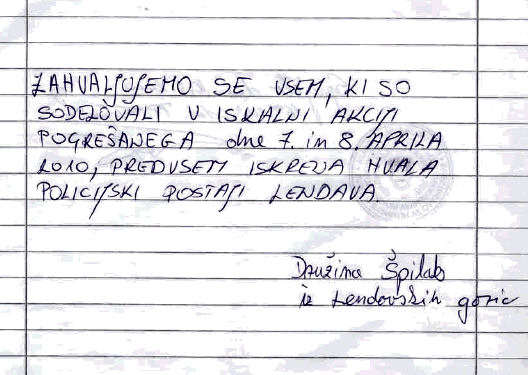 ZAHVALJUJEMO SE VSEM, KI SO
SODELOVALI V ISKALNI AKCIJI
POGREŠANEGA dne 7. in 8. APRILA
2010, PREDVSEM ISKRENA HVALA
POLICIJSKI POSTAJI LENDAVA.
Družina Špilak
iz Lendavskih goric